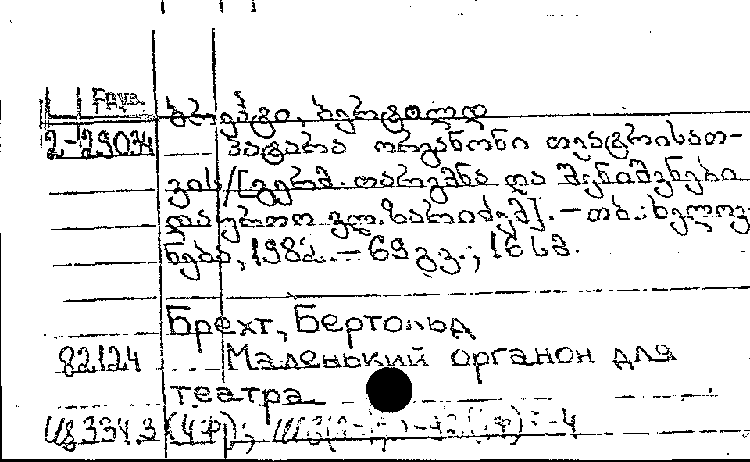 Груз.
2-29034
ბრეხტი, ბერტოლდ
პატარა ორგანონი თეატრისათ-
ვის/[გერმ. თარგმნა და შენიშვნები
დაურთო ვლ. ზარიძემ]. – თბ.: ხელოვ-
ნება, 1982. – 69 გვ.; 16 სმ.
Брехт, Бертольд
82124 Маленький органон для
театра
Щ334.3(4Ф);